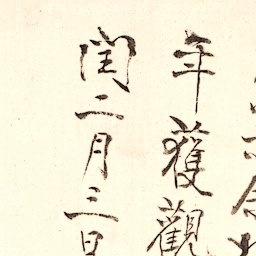 年獲觀
閏二月三日